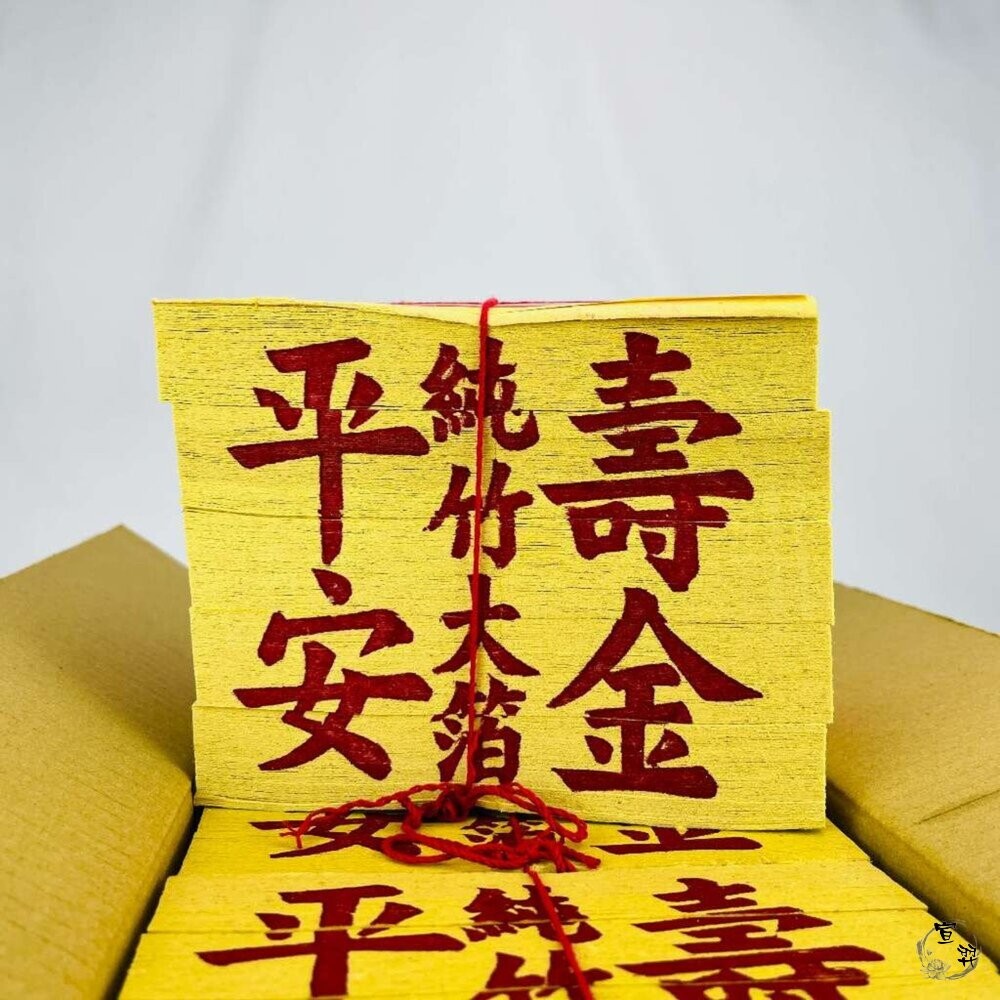 壽金
純竹大箔
平安
金
安
壽
純竹
平
宣羿